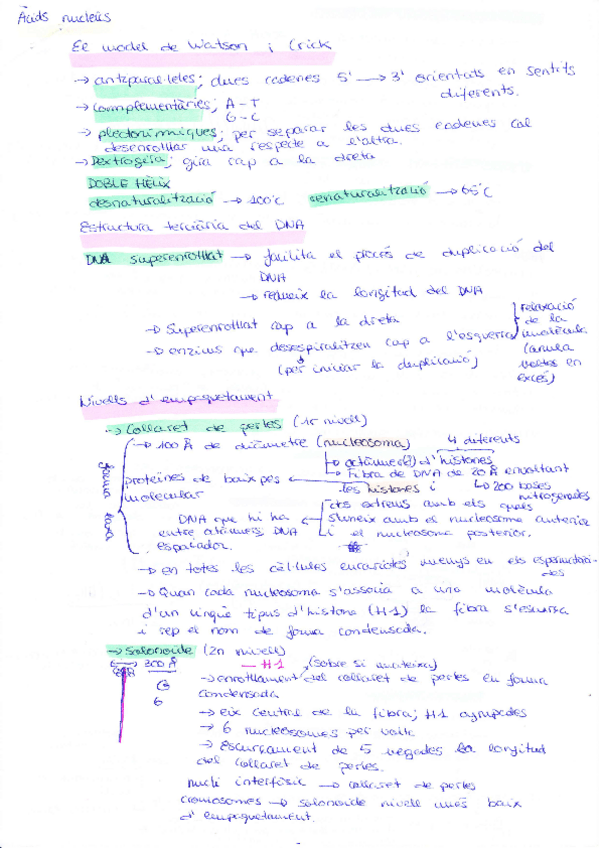 Àcids nucleics
El model de Watson i Crick
→ antiparal·leles; dues cadenes 5' → 3' orientats en sentits
diferents.
→ complementàries; A-T
G-C
→ plectonímiques; per separar les dues cadenes cal
desenrotllar una respecte a l'altra.
→ Dextrogira; gira cap a la dreta
DOBLE HÈLIX
desnaturalització → 100°C renaturalització → 65°C
Estructura terciària del DNA
DNA superenrotllat → facilita el procés de duplicació del
DNA
→ redueix la longitud del DNA
→ Superenrotllat cap a la dreta
→ enzims que desespiralitzen cap a l'esquerra
(per iniciar la duplicació)
relaxació
de la
molècula
(anula
voltes en
excés)
Nivells d'empaquetament
→ Collaret de perles (1r nivell)
→ 100 Å de diàmetre (nucleosoma) 4 diferents
octàmer(8) d'histones
fibra de DNA de 20 Å envoltant
les histones i → 200 bases
nitrogenades
proteïnes de baix pes
molecular
forma laxa
els extrems amb els quals
s'uneix amb el nucleosoma anterior
i el nucleosoma posterior.
DNA que hi ha
entre àtomers, DNA
espaiador.
→ en totes les cèl·lules eucariotes menys en els espermatozoi-
des
→ Quan cada nucleosoma s'associa a una molècula
d'un únic tipus d'histona (H-1) la fibra s'escursa
i rep el nom de forma condensada.
→ Solenoide (2n nivell)
300 Å
— H-1 (sobre si mateixa)
→ enrotllament del collaret de perles en forma
condensada
→ eix central de la fibra; H1 agrupades
→ 6 nucleosomes per volta
→ Escurçament de 5 vegades la longitud
del collaret de perles.
6
nucli interfàsic → collaret de perles
cromosomes → solenoide nivell més baix
d'empaquetament.